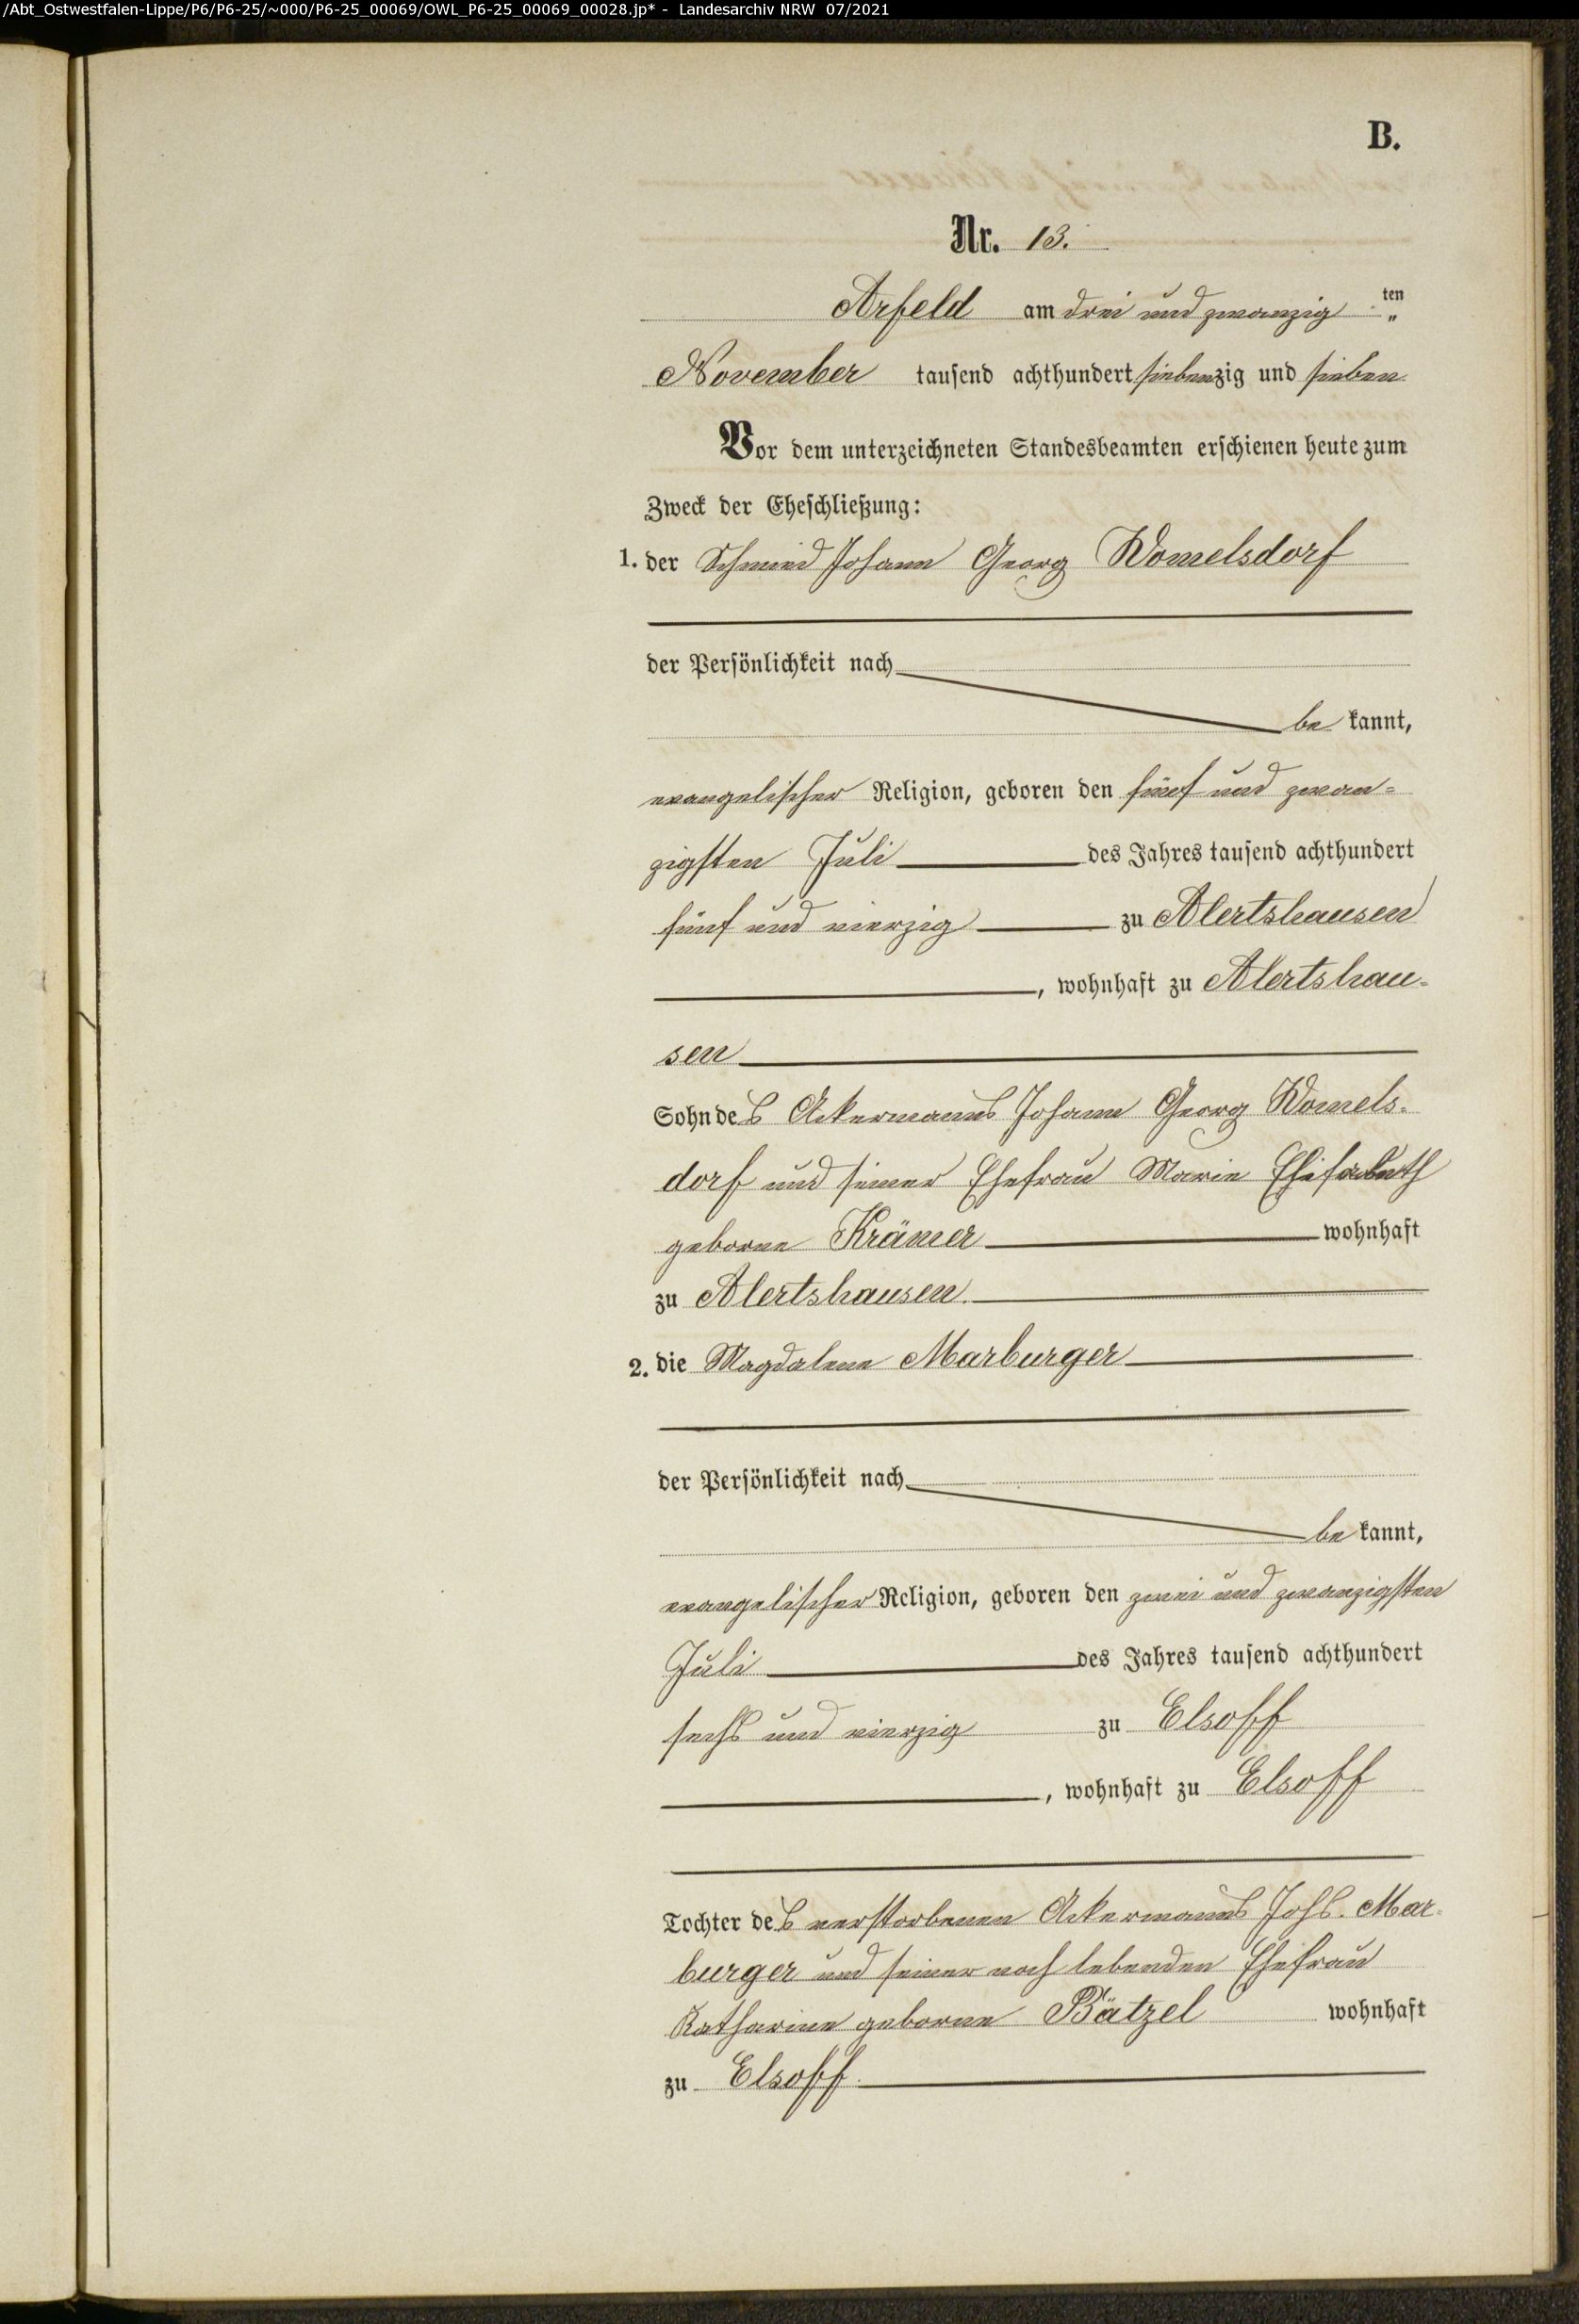 /Abt_Ostwestfalen-Lippe/P6/P6-25/~000/P6-25_00069/OWL_P6-25_00069_00028.jp* - Landesarchiv NRW 07/2021
B.
Nr. 13.
Arfeld am drei und zwanzig ten
November tausend achthundert siebenzig und sieben
Vor dem unterzeichneten Standesbeamten erschienen heute zum
Zweck der Eheschließung:
1. der Schmied Johann Georg Womelsdorf
der Persönlichkeit nach
be kannt,
evangelischer Religion, geboren den fünf und zwan=
zigsten Juli des Jahres tausend achthundert
fünf und vierzig zu Alertshausen
, wohnhaft zu Alertshau-
sen
Sohn des Ackermanns Johann Georg Womels-
dorf und seiner Ehefrau Marie Elisabeth
geborne Krämer wohnhaft
zu Alertshausen.
2. die Magdalene Marburger
der Persönlichkeit nach
be kannt,
evangelischer Religion, geboren den zwei und zwanzigsten
Juli des Jahres tausend achthundert
sechs und vierzig zu Elsoff
, wohnhaft zu Elsoff
Tochter des verstorbenen Ackermanns Johs. Mar-
burger und seiner noch lebenden Ehefrau
Katharine geborne Bätzel wohnhaft
zu Elsoff.